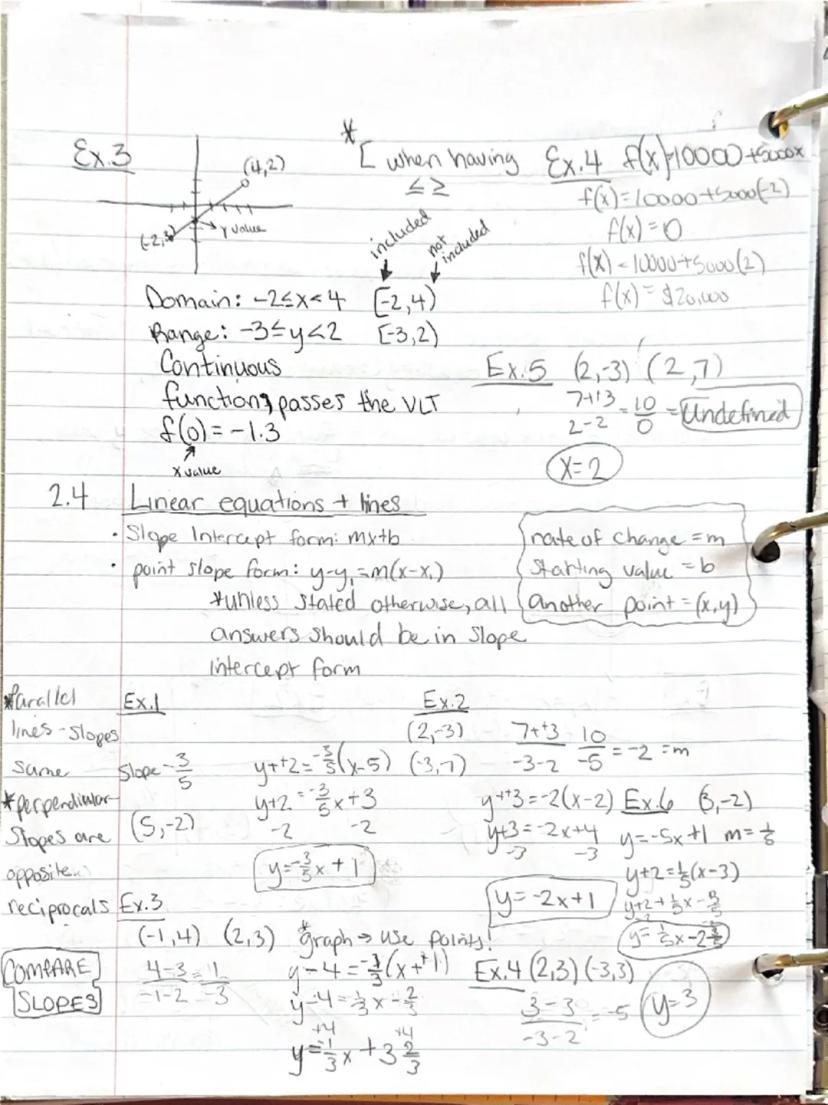 Ex.3
(4,2)
(-2,3)
y value
* [ when having
≤ ≥
included
not included
Domain: -2≤x<4 [-2,4)
Range: -3≤y<2 [-3,2)
Continuous
function, passes the VLT
f(0) = -1.3
x value
Ex.4 f(x)=10000+5000x
f(x)=10000+5000(-2)
f(x)=0
f(x)=10000+5000(2)
f(x)=$20,000
Ex.5 (2,-3) (2,7)
7++3/2-2 = 10/0 = Undefined
x=2
2.4 Linear equations + lines
· Slope Intercept form: mx+b
· point slope form: y-y₁=m(x-x₁)
*unless stated otherwise, all
answers should be in slope
intercept form
rate of change = m
starting value = b
another point = (x,y)
*Parallel
lines - slopes
same
*perpendicular
slopes are
opposite
reciprocals
COMPARE
SLOPES
Ex.1
Slope -3/5
(5,-2)
y++2=-3/5(x-5)
y+2=-3/5x+3
-2 -2
y=-3/5x+1
Ex.2
(2,-3)
(-3,7)
7++3/-3-2 10/-5 = -2 = m
y++3=-2(x-2)
y+3=-2x+4
-3 -3
y=-2x+1
Ex.6 (3,-2)
y=-5x+1 m=1/5
y+2=1/5(x-3)
Ex.3
(-1,4) (2,3) *graph → use points!
4-3/-1-2 = 1/-3
y-4=-1/3(x++1)
+4 +4
y=-1/3x+3 2/3
Ex.4 (2,3) (-3,3)
3-3/-3-2 = -5
y=3